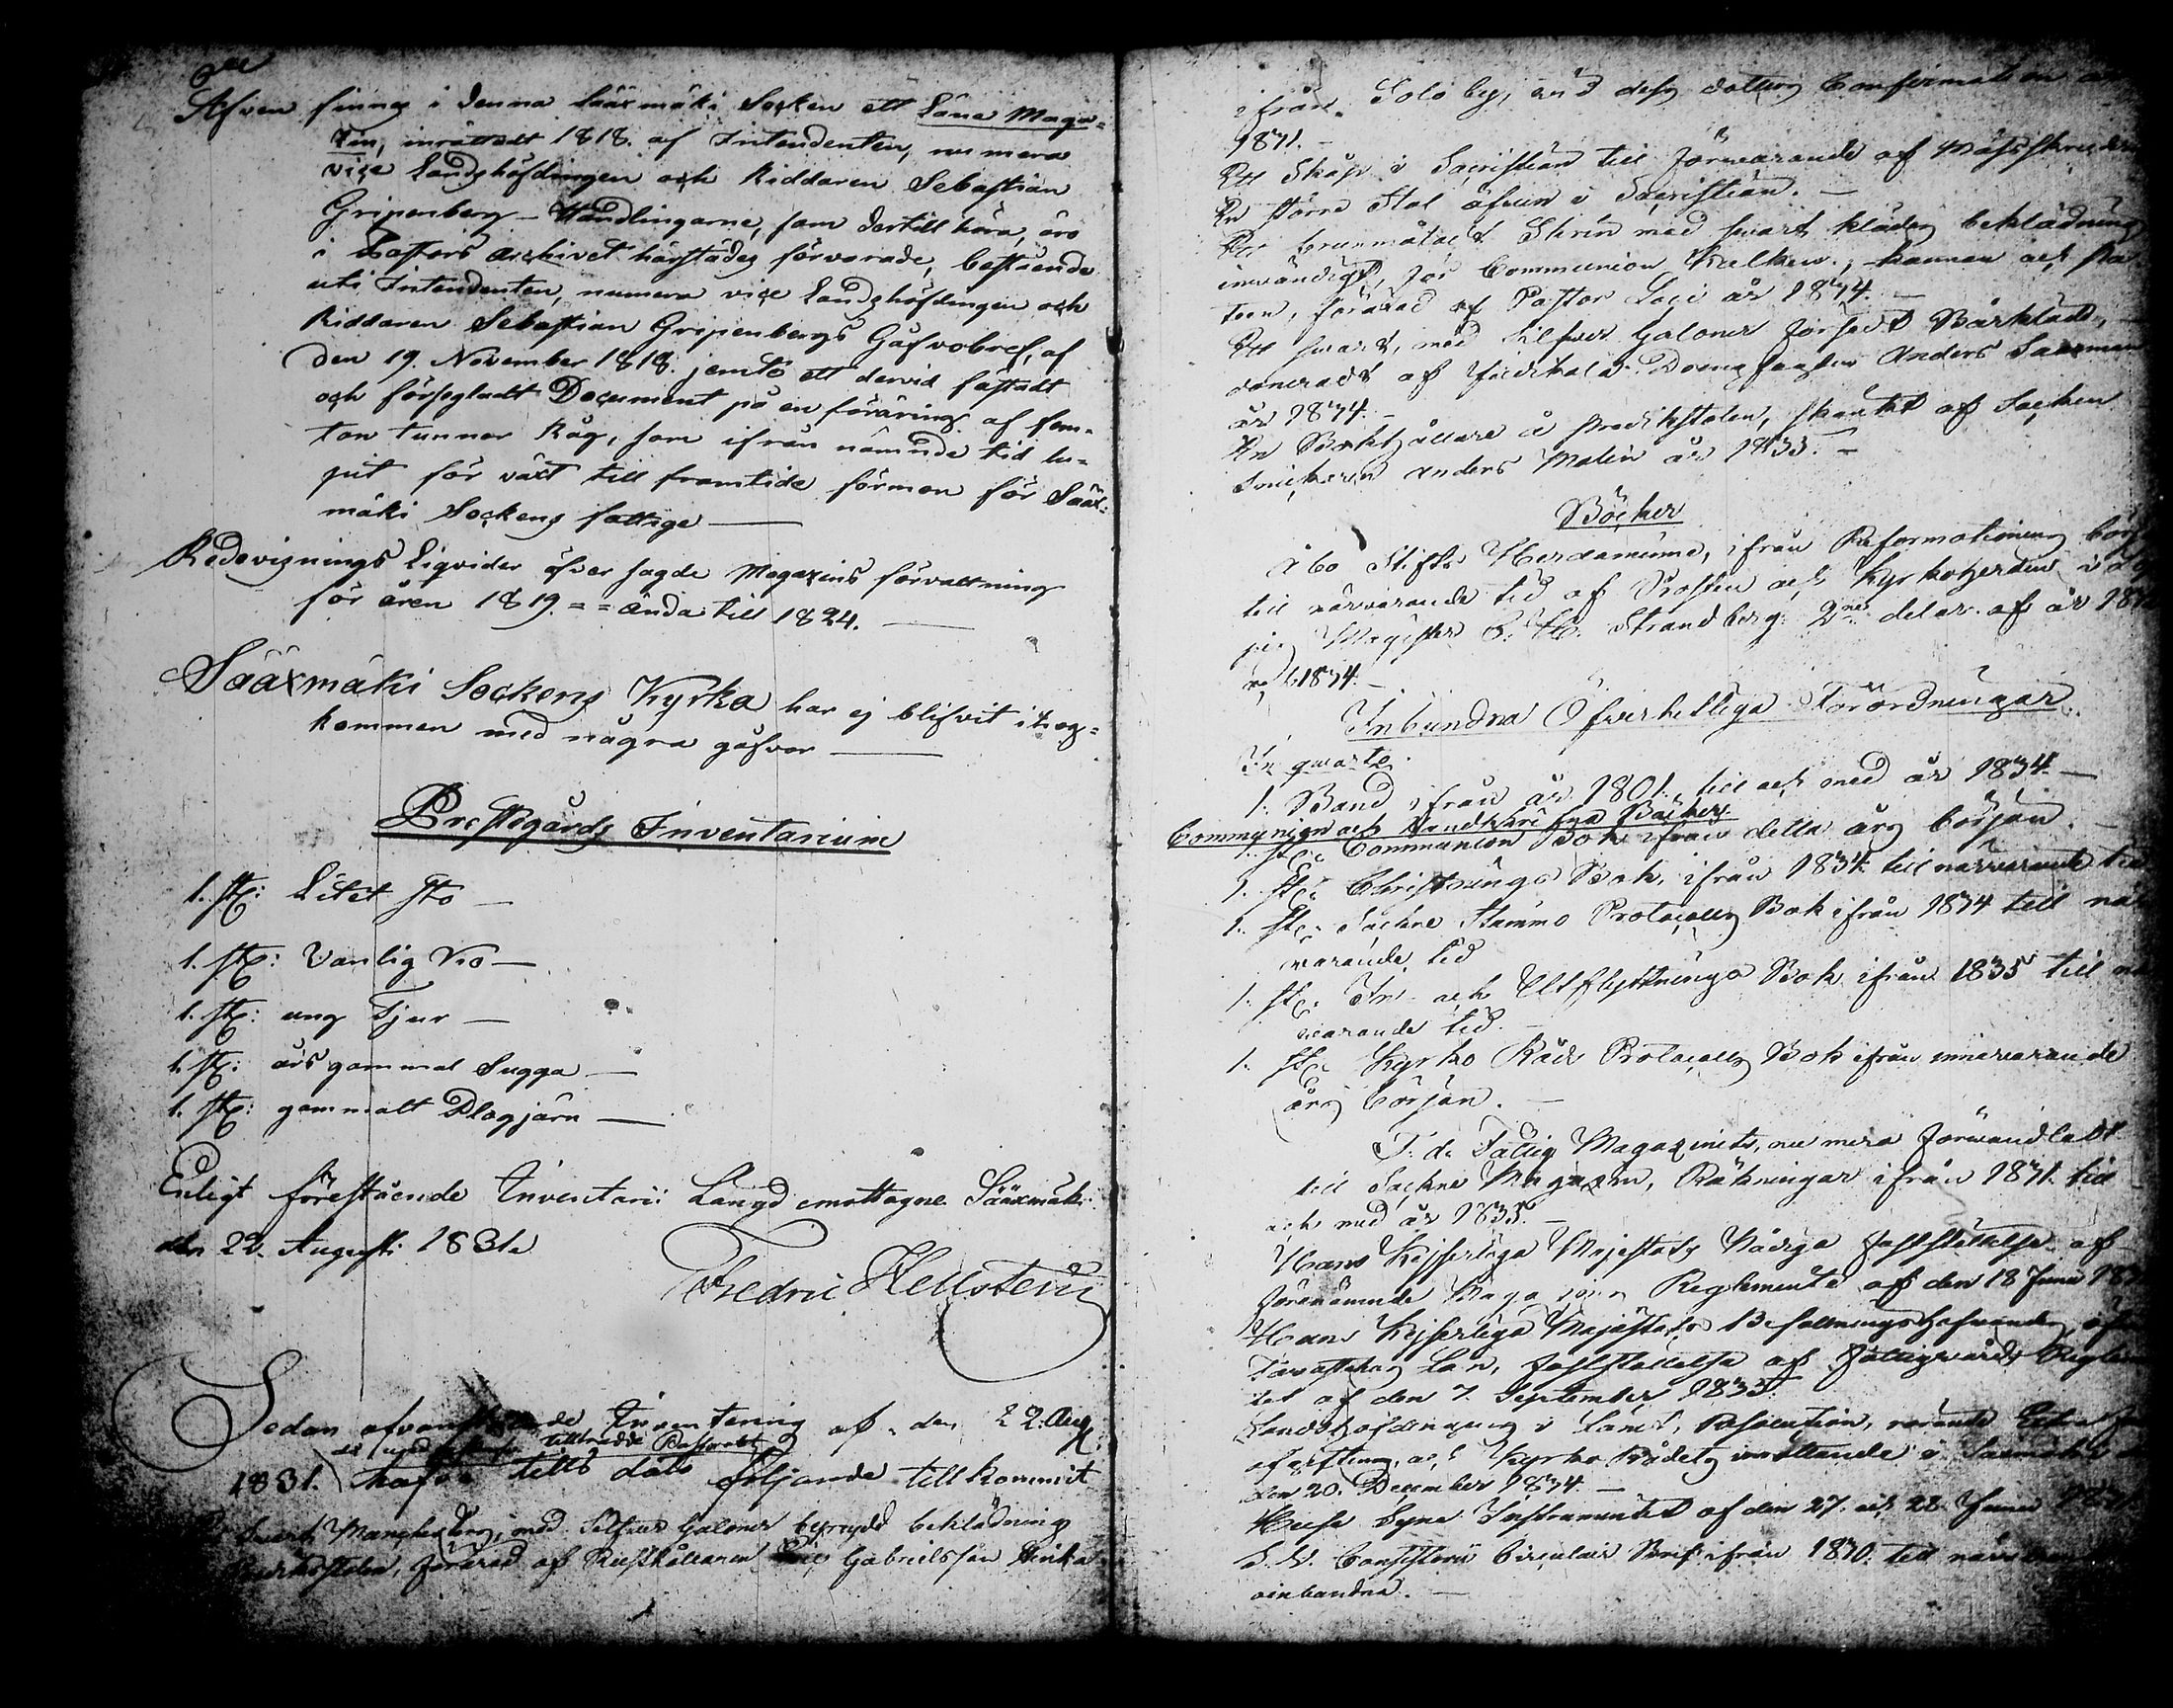 Äfven finnes i denna Sääxmäki Socken ett Låne Maga=
zin, inrättadt 1818. af Intendenten, nu mera
vice Landshöfdingen och Riddaren Sebastian
Gripenberg – Handlingarne, som dertill höra, äro
i Pastors Archivet härstädes förvarade, bestående
uti Intendenten, numera vice Landshöfdingen och
Riddaren Sebastian Gripenbergs Gåfvobref, af
den 19. November 1818. jemte ett dervid fästadt
och förseglad Document på en föräring af fem=
ton tunnor Råg, som ifrån nämnde tid lu=
pit för växt till framtida förmon för Sääx=
mäki Sockens fattige —
Redovisnings Liqvider öfver sagde Magazins förvaltning
för åren 1819. = = ända till 1824. —
Sääxmäki Sockens Kyrka har ej blifvit ihog=
kommen med några gåfvor —
Prestgårds Inventarium
1. st: Litet Sto —
1. st: Vanlig Ko —
1. st: ung Tjur —
1. st: årsgammal Sugga —
1. st: gammalt Plogjärn —
Enligt förestående Inventarii Längd emottagne. Sääxmäki
den 22. Augusti 1831.
Fredric Hellsten
Sedan Inventering af den 22. Aug.
tillträdde Pastoratet
1831. hafva till dato följande tillkommit
Svart med Silfver Galoner beprydd beklädning
förärad af Gabrielsson
ifrån Solo by, vid dess dotters Confirmation
1831. –
Ett Skåp i Sacristian till förwarande af
En större Stol äfven i Sacristian. —
Ett brunmålat Skrin med svart klädes beklädning
invändigt, för Communion Kalken, kannan och
förärad af Pastor år 1834. —
Ett svart, med Silfver Galoner försedt Bårkläde,
doneradt af Anders
år 1834. –
En å Predikstolen, skänkt af Socken
Snickaren Anders Malin år 1833. –
Böcker
Åbo Stifts Herdaminne, ifrån Reformationens
till närvarande tid af Prosten och Kyrkoherden i
Magister C. H. Strandberg 2ne delar af år
1834. –
Inbundna Öfverhetliga Förordningar
In quarto.
1. Band ifrån år 1801. till och med år 1834. —
Communion och Handskrifna Böcker.
1. st: Communion Bok ifrån detta års början. —
1. st: Christnings Bok, ifrån 1834. till närvarande tid
1. st: Sockne Stämmo Protocolls Bok ifrån 1834 till när
warande tid
1. st: In- och Utflyttnings Bok ifrån 1835 till
warande tid.
1. st: Kyrko Råds Protocolls Bok ifrån innevarande
års början. —
F. d. Fattig Magazinets, nu mera förwandladt
till Sockne Magazin, Räkningar ifrån 1831. till
och med år 1835. –
Hans Kejserliga Majestäts Nådiga fastställelse af
förenämnde Reglemente af den 18 Junii
Hans Kejserliga Majestäts Befallningshafvandes
Tavastehus Län, fastställelse af Fattigvårds
af den 7. September 1835.
Landshöfdingens i Länet, Resolution, rörande
och Kyrko Rådets inrättande i Sääxmäki
den 20. December 1834. —
Huse Syne Instrumentet af den 27. och 28. Junii
Consistorii Circulair Bref ifrån 1830. till
oinbundna. —